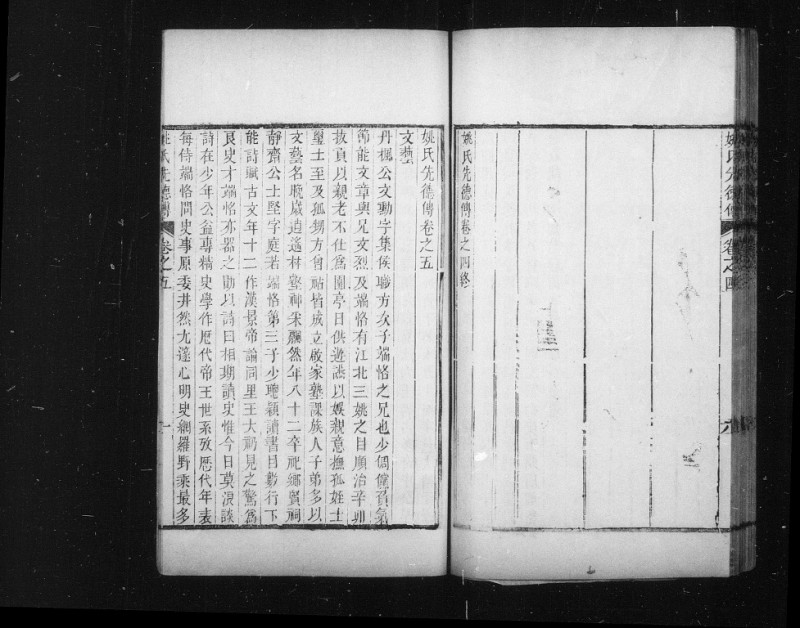 姚氏先德傳
卷之四
六
姚氏先德傳卷之四終
姚氏先德傳卷之五
文藝
丹楓公文勳字集侯職方次子端恪之兄也少倜儻負氣
節能文章與兄文烈及端恪有江北三姚之目順治辛卯
拔貢以親老不仕爲園亭日供遊憇以娛親意撫孤姪士
璺士至及孤甥方曾祐皆成立啟家塾課族人子弟多以
文藝名晚嵗逍遙林壑神采飄然年八十二卒祀鄉賢祠
靜齋公士堅字庭若端恪第三子少聰穎讀書目數行下
能詩賦古文年十二作漢景帝論同里王大礽見之驚爲
良史才端恪亦器之勖以詩曰相期讀史惟今日莫浪談
詩在少年公益專精史學作厯代帝王世系攷厯代年表
每侍端恪問史事原委井然尤遂心明史網羅野乘最多
姚氏先德傳
卷之五
一